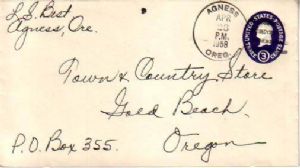 L.S. Brst
Agness, Ore.
AGNESS
APR
26
P.M.
1958
OREG.
UNITED STATES POSTAGE
3
Town & Country Store
Gold Beach,
P.O. Box 355.
Oregon